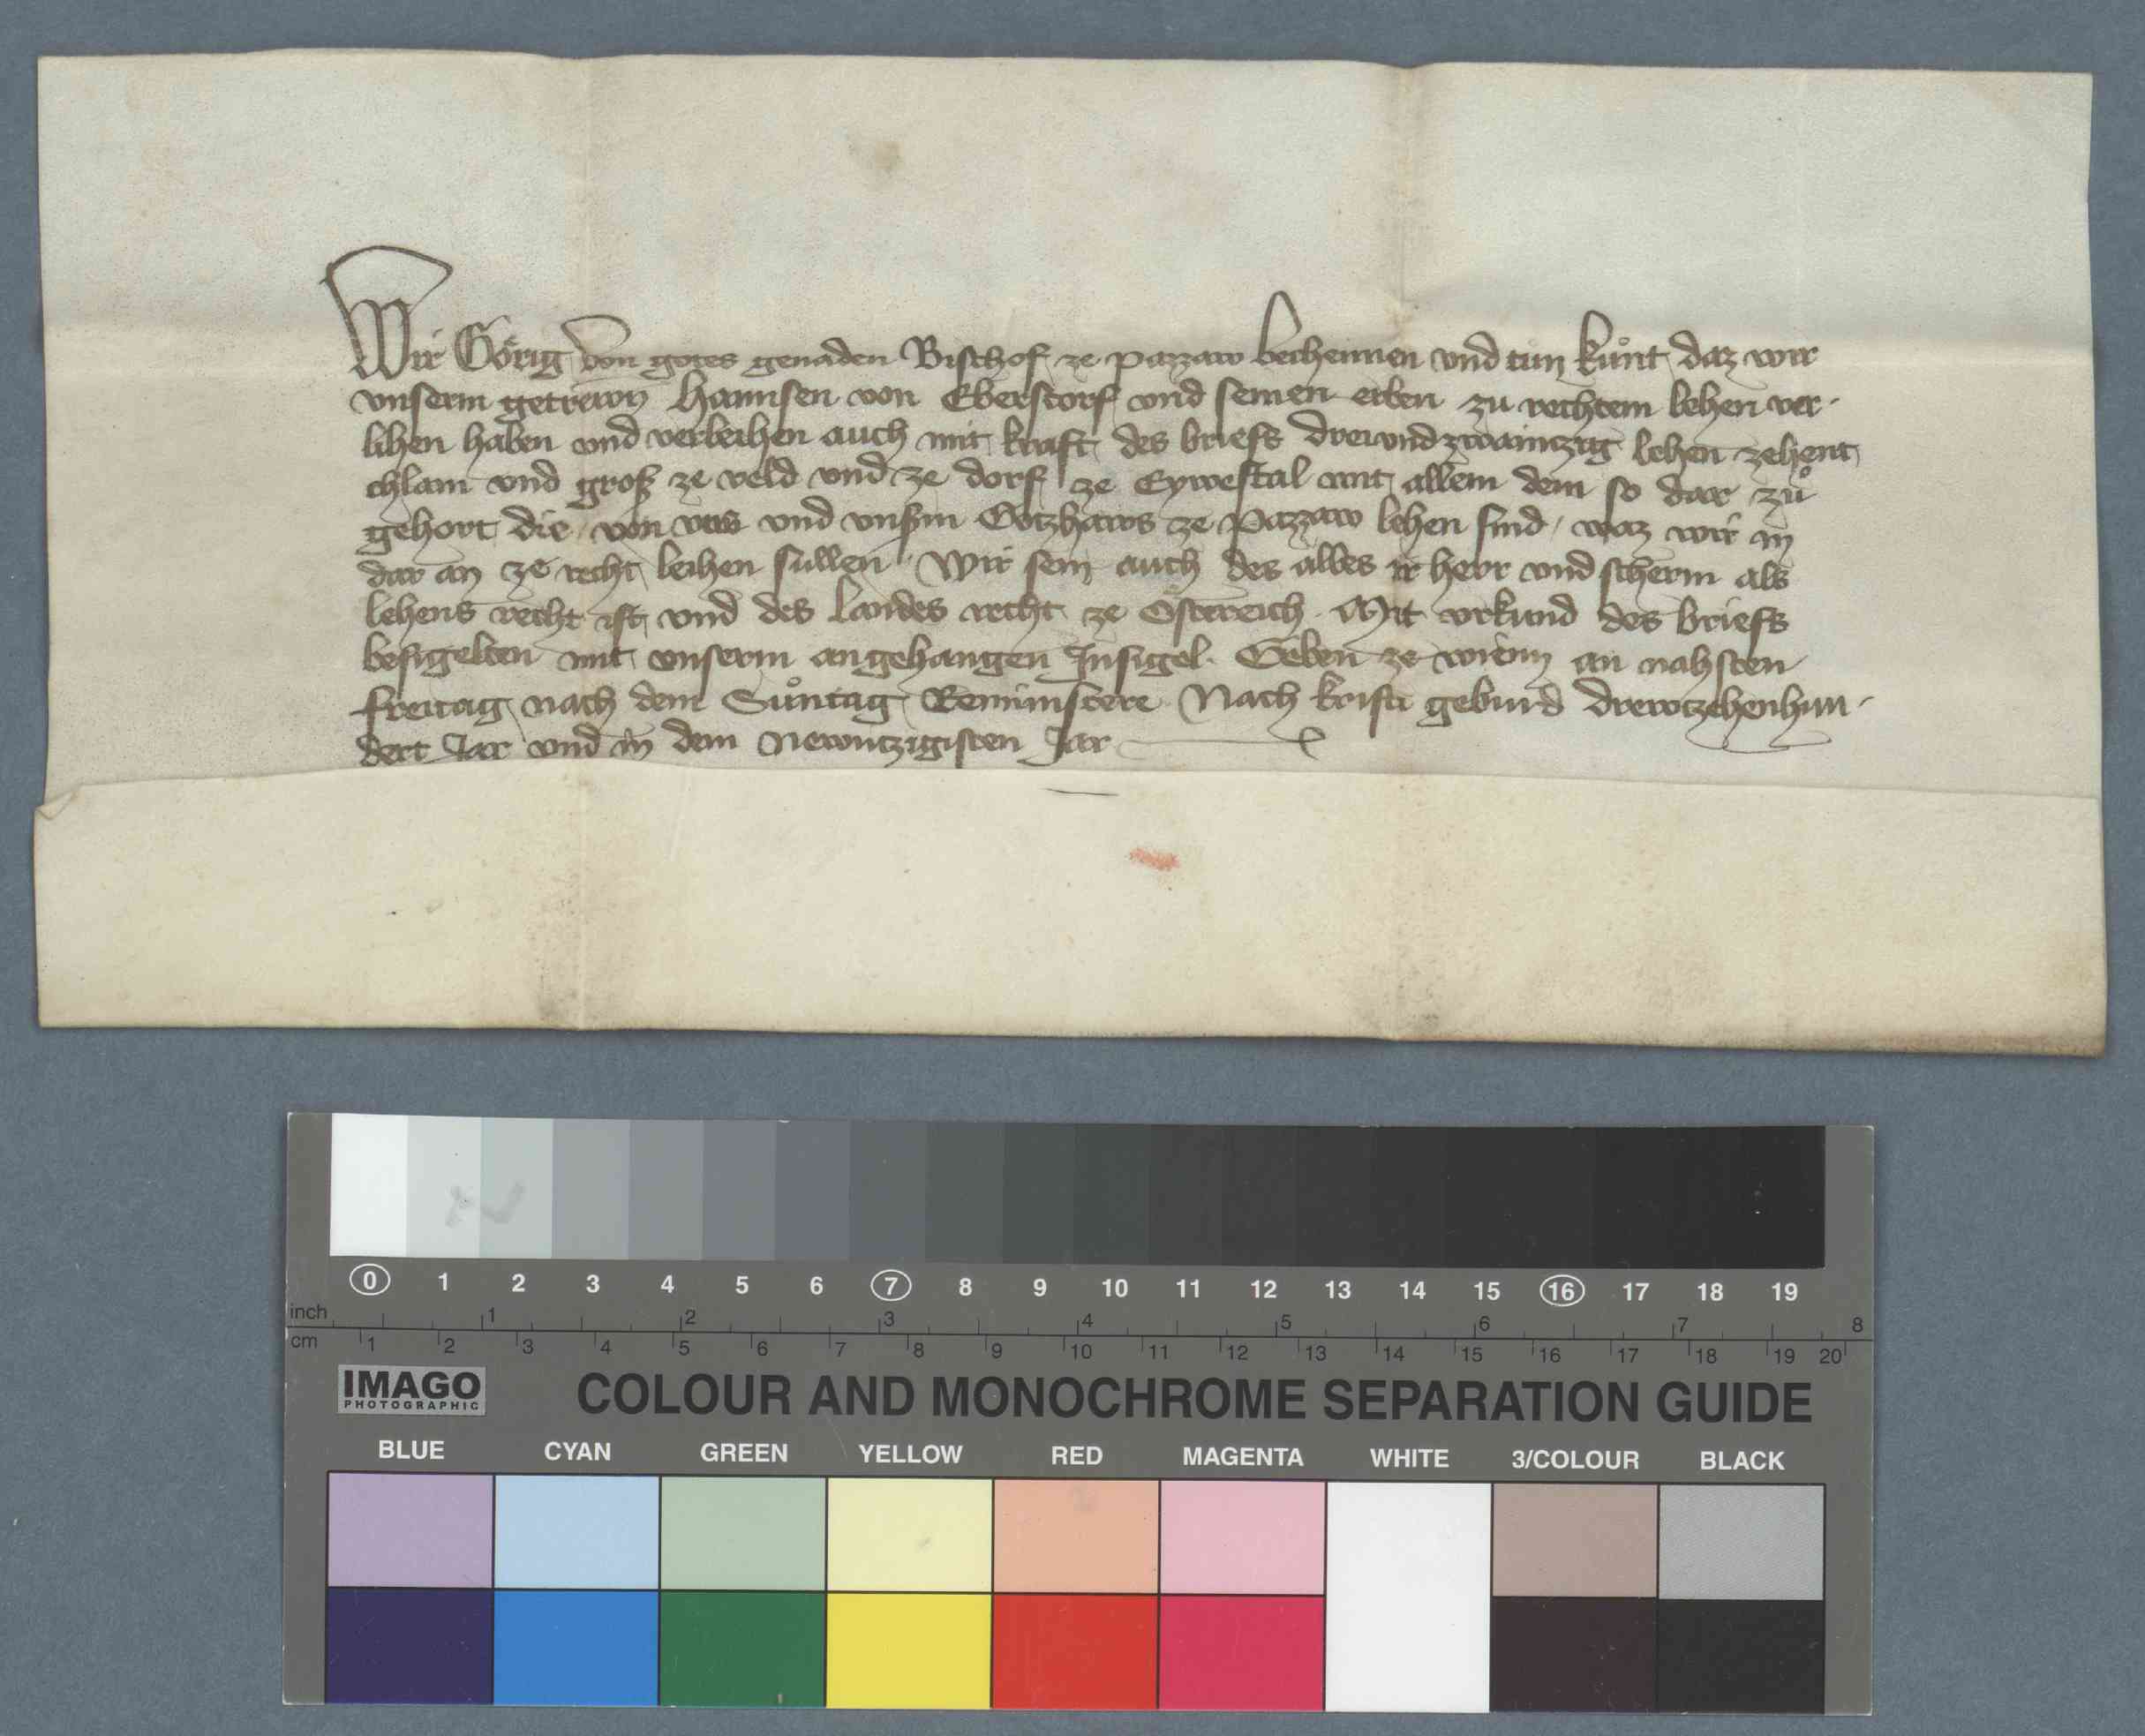 Wir Görig von gotes genaden Bischof ze pazzaw bechennen vnd tun kůnt daz wir
vnserm getrewn Hannsen von Eberstorf vnd seinen erben zu rechtem lehen ver-
lihen haben vnd verleihen auch mit kraft des briefs drewundzwaintzig lehen zehent
chlain vnd groß ze veld vnd ze dorf ze Eywestal mit allem dem so dar zů
gehort die von vns vnd vnßm Gotzhaws ze Pazzaw lehen sind waz wir in
dar an ze recht leihen sullen Wir sein auch des alles ir herr vnd scherm als
lehens recht ist vnd des Landes recht ze Österreich Mit vrkund des briefs
besigelten mit vnserm angehangen Insigel. Geben ze wienn an nahsten
freitag nach dem Sůntag Reminiscere Nach kristi geburd drewtzehenhun-
dert Jar vnd in dem Newntzigisten Jar
0 1 2 3 4 5 6 7 8 9 10 11 12 13 14 15 16 17 18 19
inch 1 2 3 4 5 6 7 8
cm 1 2 3 4 5 6 7 8 9 10 11 12 13 14 15 16 17 18 19 20
IMAGO
PHOTOGRAPHIC
COLOUR AND MONOCHROME SEPARATION GUIDE
BLUE CYAN GREEN YELLOW RED MAGENTA WHITE 3/COLOUR BLACK